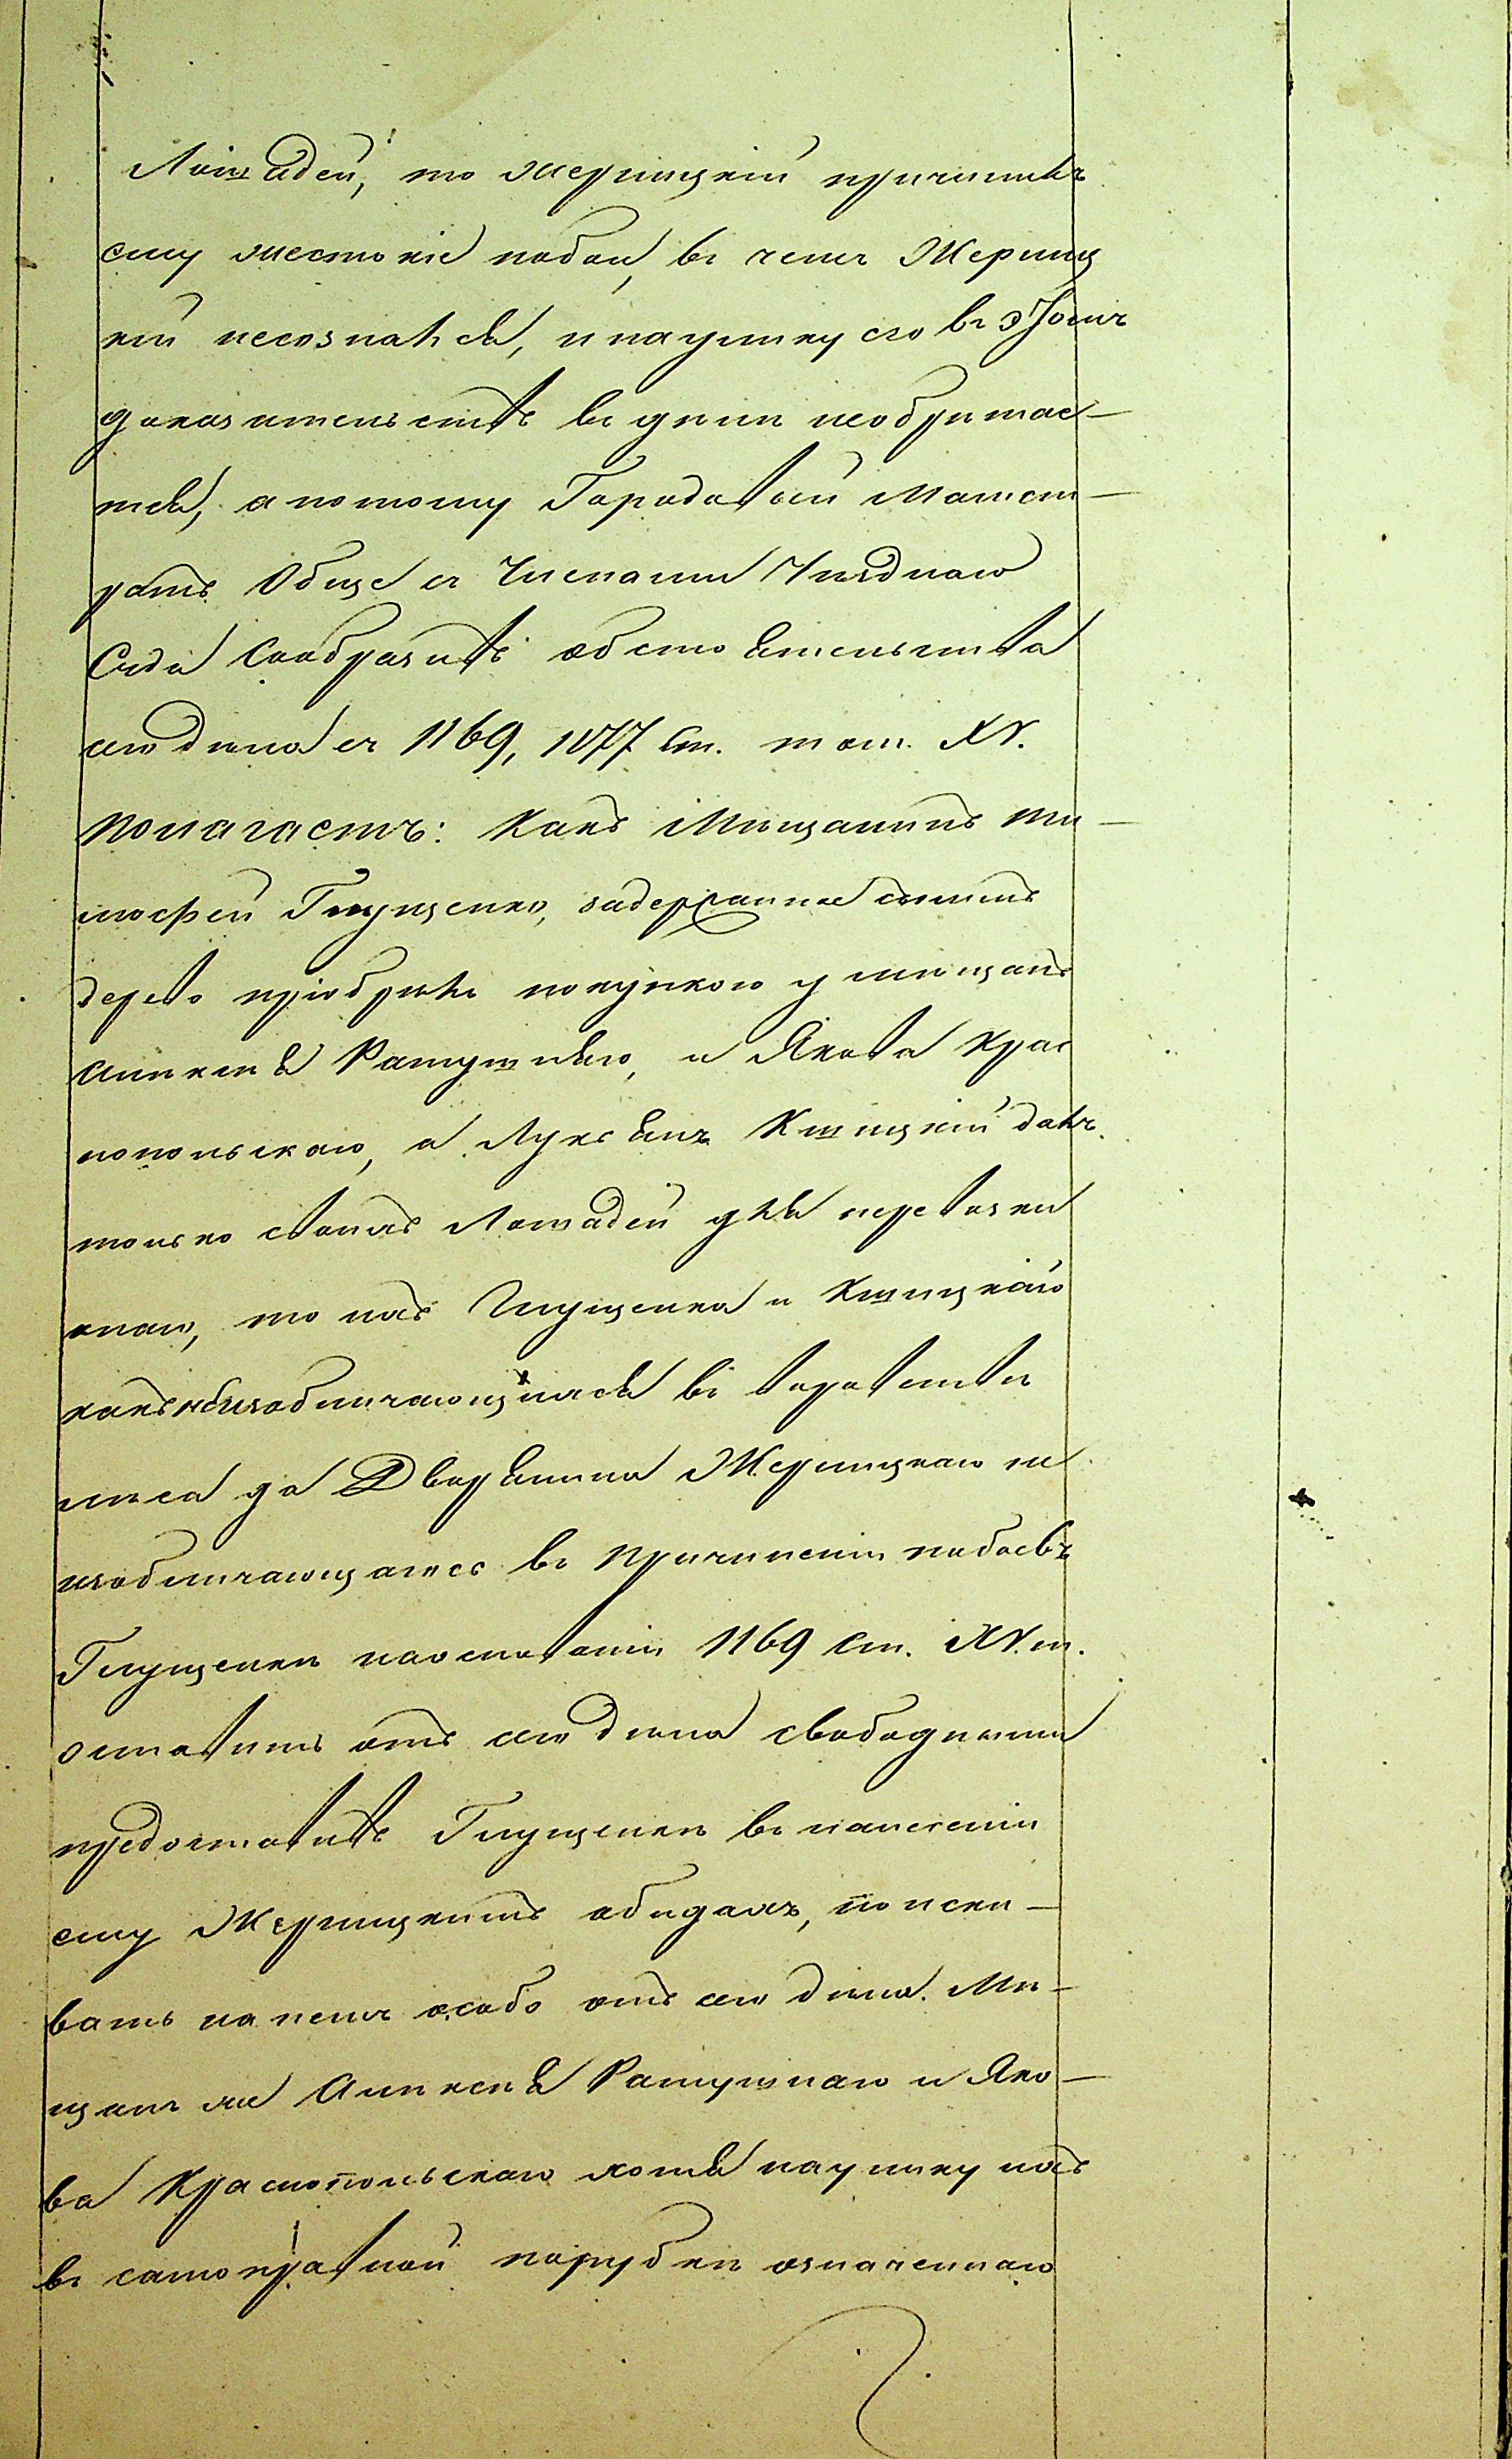 Лошадей, то Жерницкій причинилъ
ему жестокіе побои, въ чемъ Жерниц
кій несознался, и науличку его въ этомъ
доказательствъ въ дѣлѣ необрѣтае-
тся, а потому Городовый Магист-
ратъ Обще съ Членами Уѣзднаго
Суда Сообразивъ обстоятельства
сего дѣла съ 1169, 1177 Ст. том. XV.
полагаетъ: Какъ Мѣщанинъ Ти-
мофей Глущенко, задержанное съ нимъ
дерево пріобрѣлъ покупкою у мѣщанъ
Алексѣя Ратушняго, и Якова Крас
нопольскаго, а Лукьянъ Кшицкій далъ
только своихъ Лошадей для перевозки
онаго, то ихъ Глущенка и Кшицкаго
какъ неизобличающихся въ воровствѣ
лѣса да Дворянина Жерницкаго не
изобличающагося въ причиненіи побоевъ
Глущенкѣ наоснованіи 1169 Ст. XV. т.
оставить отъ сего дѣла свободными
предоставивъ Глущенкѣ въ нанесеніи
ему Жерницкимъ обидахъ, поиски-
вать на немъ особо отъ сего дѣла. Мѣ-
щанъ же Алексѣя Ратушнаго и Яко-
ва Краснопольскаго хотя науличку ихъ
въ самоправной порубкѣ означеннаго